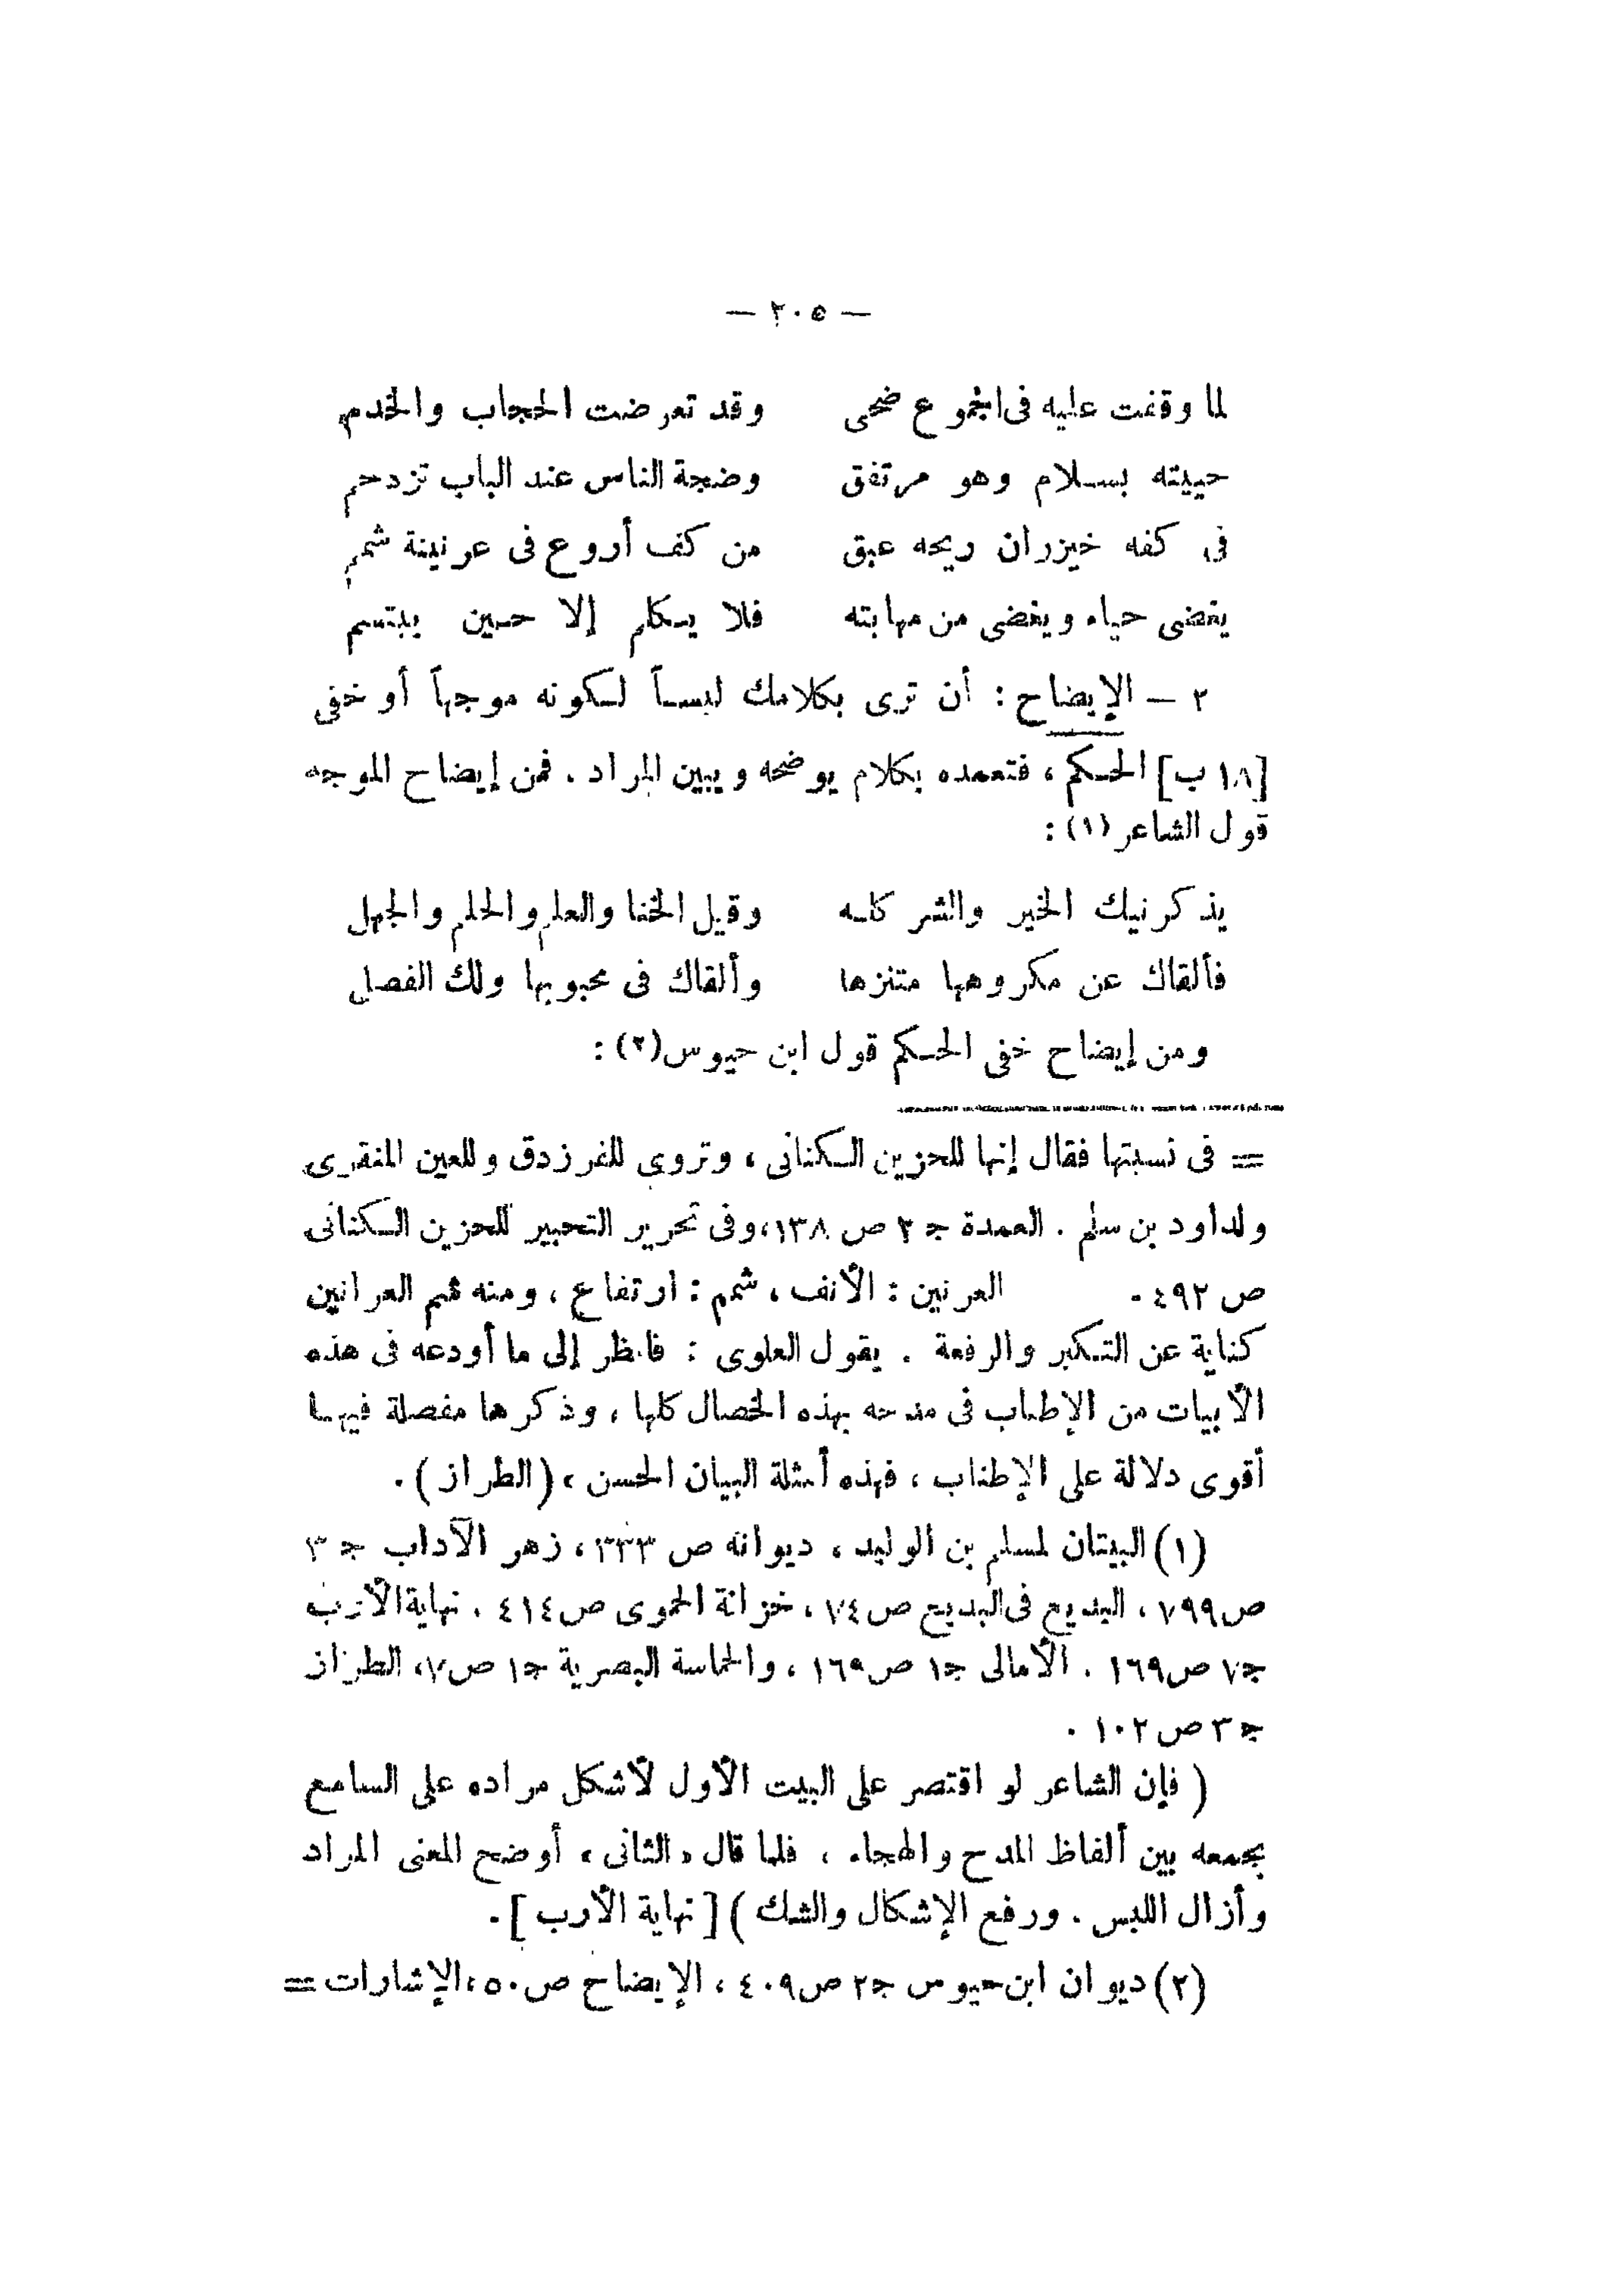 — ٢٠٥ —
لما وقفت عليه فى الجموع ضحى وقد تعرضت الحجاب والخدم
حييته بسلام وهو مرتفق وضجة الناس عند الباب تزدحم
فى كفه خيزران ريحه عبق من كف أروع فى عرنينة شمم
يغضى حياء ويغضى من مهابته فلا يكلم إلا حين يبتسم
٢ — الإيضاح : أن ترى بكلامك لبساً لكونه موجهاً أو خفى
[١٨ ب] الحكم ، فتعمده بكلام يوضحه ويبين المراد . فمن إيضاح الموجه
قول الشاعر (١) :
يذكرنيك الخير والشر كله وقيل الخنا والعلم والحلم والجهل
فألقاك عن مكروهها متنزها وألقاك فى محبوبها ولك الفضل
ومن إيضاح خفى الحكم قول ابن حيوس(٢) :
= فى نسبتها فقال إنها للحزين الكنانى ، وتروى للفرزدق وللعين المنقرى
ولداود بن سلم . العمدة ج ٢ ص ١٣٨، وفى تحرير التحبير للحزين الكنانى
ص ٤٩٢ . العرنين : الأنف ، شمم : ارتفاع ، ومنه شم العرانين
كناية عن التكبر والرفعة . يقول العلوى : فانظر إلى ما أودعه فى هذه
الأبيات من الإطناب فى مدحه بهذه الخصال كلها ، وذكرها مفصلة فيها
أقوى دلالة على الإطناب ، فهذه أمثلة البيان الحسن ، (الطراز) .
(١) البيتان لمسلم بن الوليد ، ديوانه ص ٣٣٣ ، زهر الآداب ج ٣
ص ٧٩٩ ، البديع فى البديع ص ٧٤ ، خزانة الحموى ص ٤١٤ . نهاية الأرب
ج٧ ص١٦٩ . الأمالى ج١ ص١٦٩ ، والحماسة البصرية ج١ ص٧، الطراز
ج ٣ ص ١٠٢ .
( فإن الشاعر لو اقتصر على البيت الأول لأشكل مراده على السامع
بجمعه بين ألفاظ المدح والهجاء ، فلما قال « الثانى » أوضح المعنى المراد
وأزال اللبس . ورفع الإشكال والشك ) [ نهاية الأرب ] .
(٢) ديوان ابن حيوس ج٢ ص٤٠٩ ، الإيضاح ص٥٠، الإشارات =